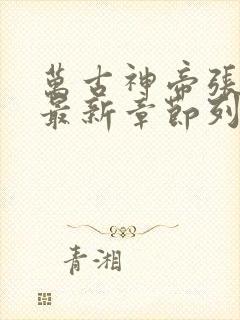 萬古神帝張
最新章節列
青湘